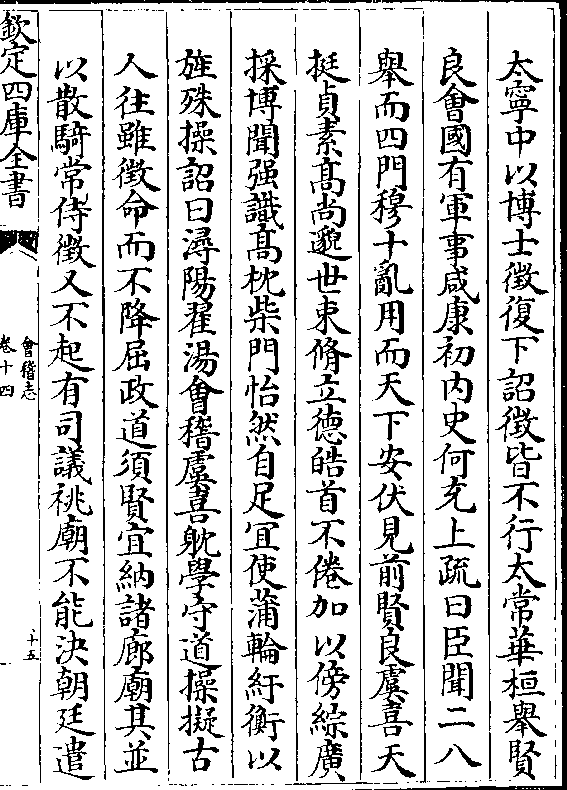 太寧中以博士徵復下詔徵皆不行太常華桓舉賢
良會國有軍事咸康初内史何充上疏曰臣聞二八
舉而四門穆十亂用而天下安伏見前賢良虞喜天
挺貞素髙尚邈世束脩立德皓首不倦加以傍綜廣
採博聞强識髙枕柴門怡然自足宜使蒲輪紆衡以
旌殊操詔曰潯陽翟湯會稽虞喜躭學守道操擬古
人往雖徵命而不降屈政道須賢宜納諸廊廟其並
以散騎常侍徵又不起有司議祧廟不能決朝廷遣
欽定四庫全書
會稽志
卷十四
十五